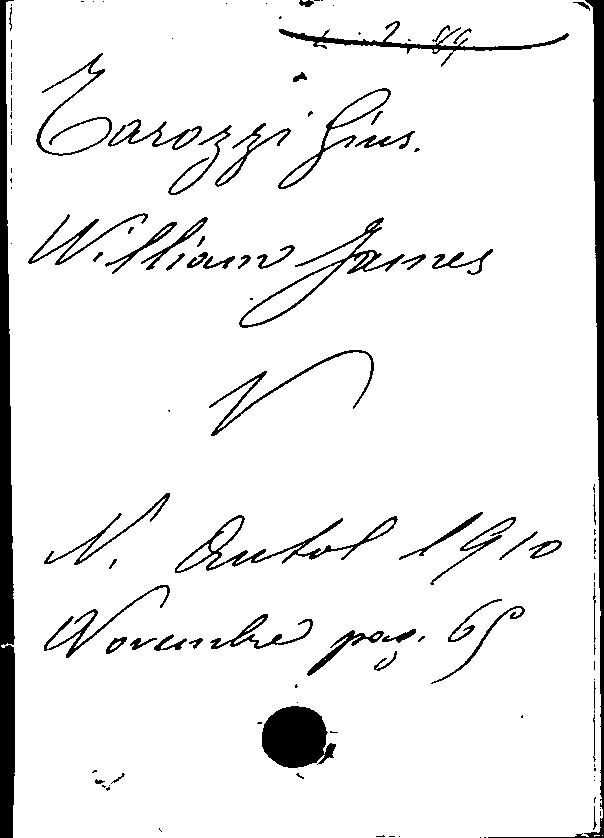 Tarozzi Gius.
William James
V
N. Antol 1910
Novembre pag. 65